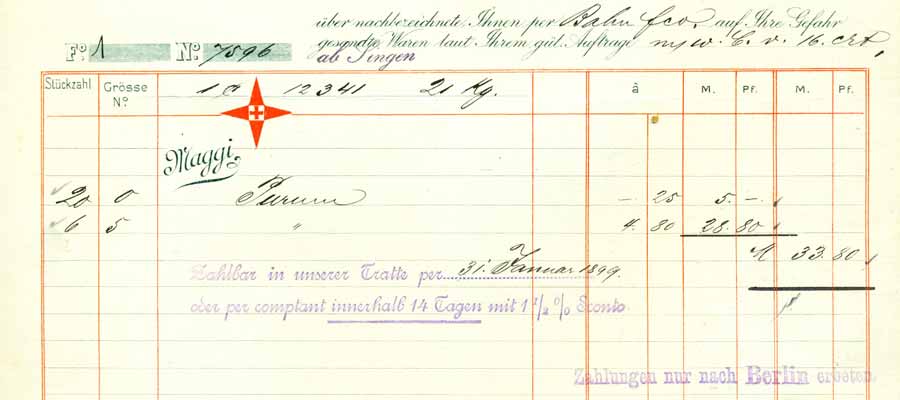 über nachbezeichnete, Ihnen per Bahn fco. auf Ihre Gefahr
Fo. 1 No. 7596 gesandte Waren laut Ihrem güt. Auftrage v. 16. crt,
ab Singen
Stückzahl Grösse No. à M. Pf. M. Pf.
1 C 12341 21 Kg.
Maggi
20 0 Purum –. 25 5. –.
6 5 " 4. 80 28. 80
M 33. 80
Zahlbar in unserer Tratte per 31. Januar 1899.
oder per comptant innerhalb 14 Tagen mit 1 1/2 % Sconto.
Zahlungen nur nach Berlin erbeten.